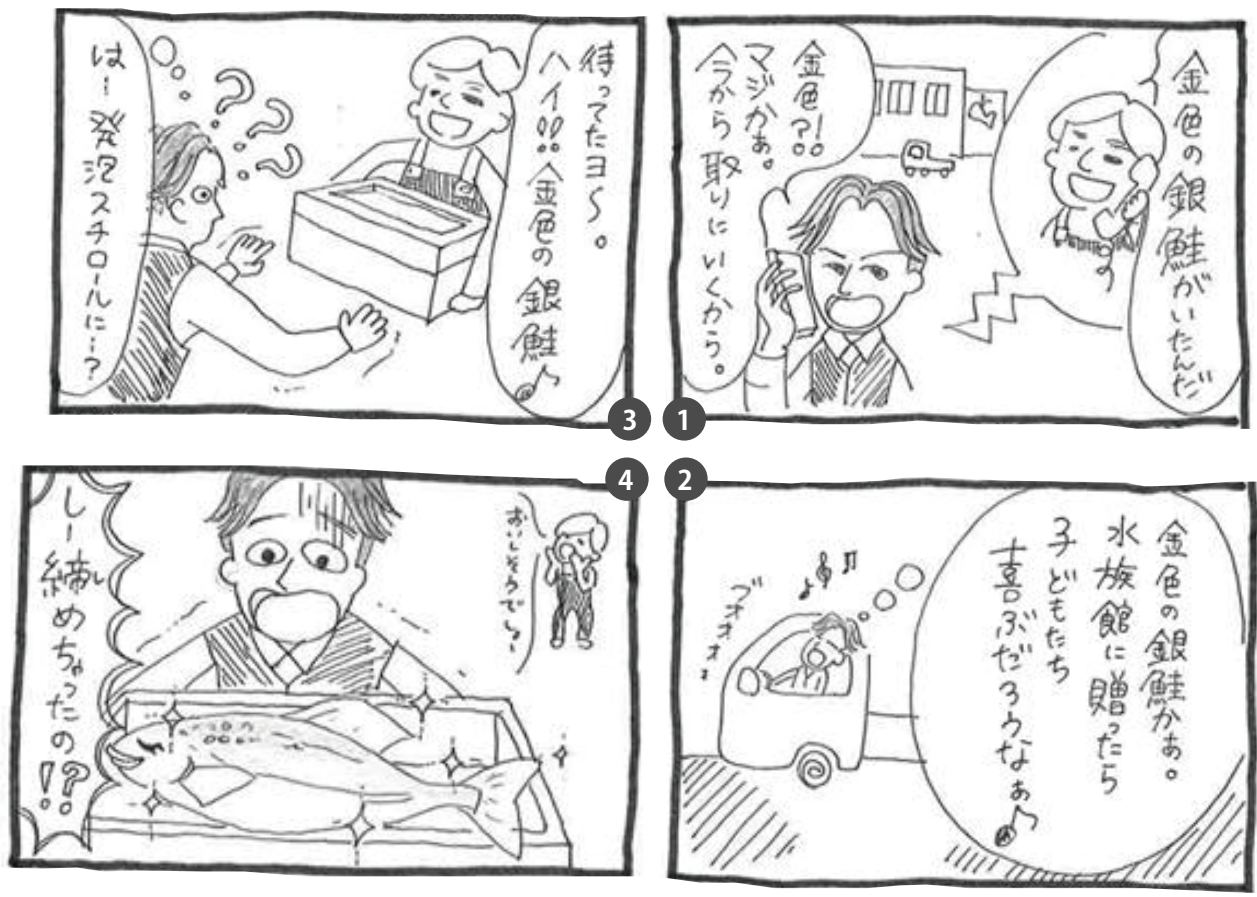 金色の銀鮭がいたんだ
金色?!!
マジかぁ。
今から取りにいくから。
1
金色の銀鮭かぁ。
水族館に贈ったら
子どもたち
喜ぶだろうなぁ♪
ブオオオ!
2
待ってたヨ〜。
ハイ!!金色の銀鮭♪
???
は…発泡スチロールに…?
3
おいしそうでしょ〜
し…締めちゃったの!?
4